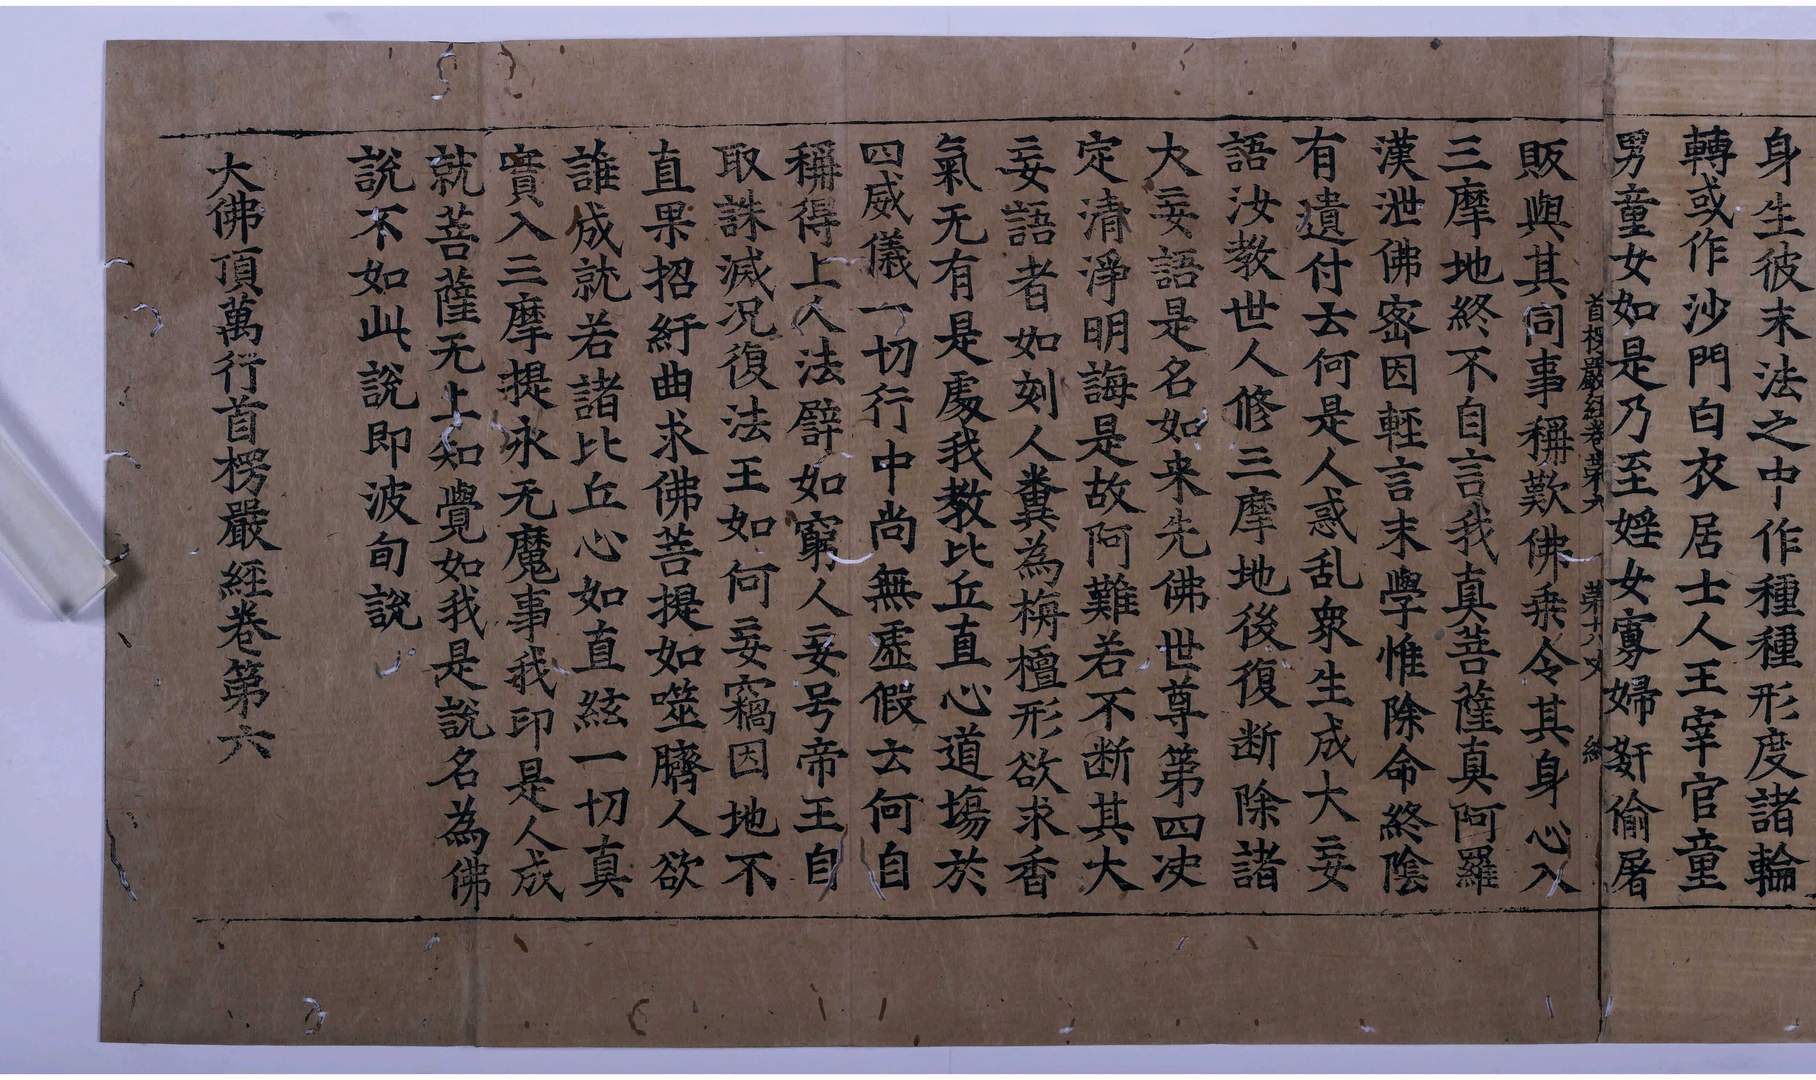 身生彼末法之中作種種形度諸輪
轉或作沙門白衣居士人王宰官童
男童女如是乃至婬女寡婦姧偷屠
首楞嚴經卷第六 第十八丈
販與其同事稱歎佛乗令其身心入
三摩地終不自言我真菩薩真阿羅
漢泄佛宻因輕言末學惟除命終陰
有遺付云何是人惑乱衆生成大妄
語汝教世人修三摩地後復断除諸
大妄語是名如来先佛世尊第四决
定清淨明誨是故阿難若不断其大
妄語者如刻人糞為栴檀形欲求香
氣无有是處我教比丘直心道塲於
四威儀一切行中尚無虛假云何自
稱得上人法譬如窮人妄号帝王自
取誅滅况復法王如何妄竊因地不
直果招紆曲求佛菩提如噬臍人欲
誰成就若諸比丘心如直絃一切真
實入三摩提永无魔事我印是人成
就菩薩无上知覺如我是說名為佛
說不如此說即波旬說
大佛頂萬行首楞嚴經卷第六